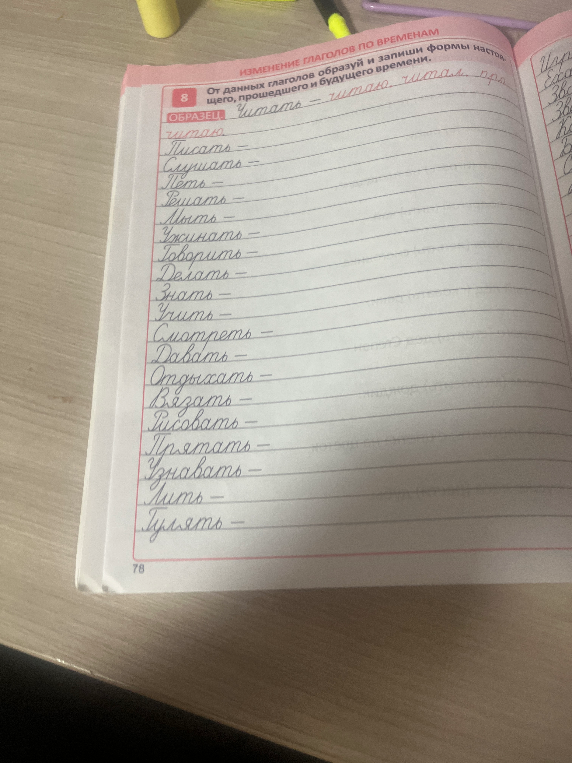 ИЗМЕНЕНИЕ ГЛАГОЛОВ ПО ВРЕМЕНАМ
8 От данных глаголов образуй и запиши формы настоя-
щего, прошедшего и будущего времени.
ОБРАЗЕЦ Читать – читаю, читал, про
читаю
Писать –
Слушать –
Петь –
Решать –
Мыть –
Ужинать –
Говорить –
Делать –
Знать –
Учить –
Смотреть –
Давать –
Отдыхать –
Вязать –
Рисовать –
Прятать –
Узнавать –
Лить –
Гулять –
78